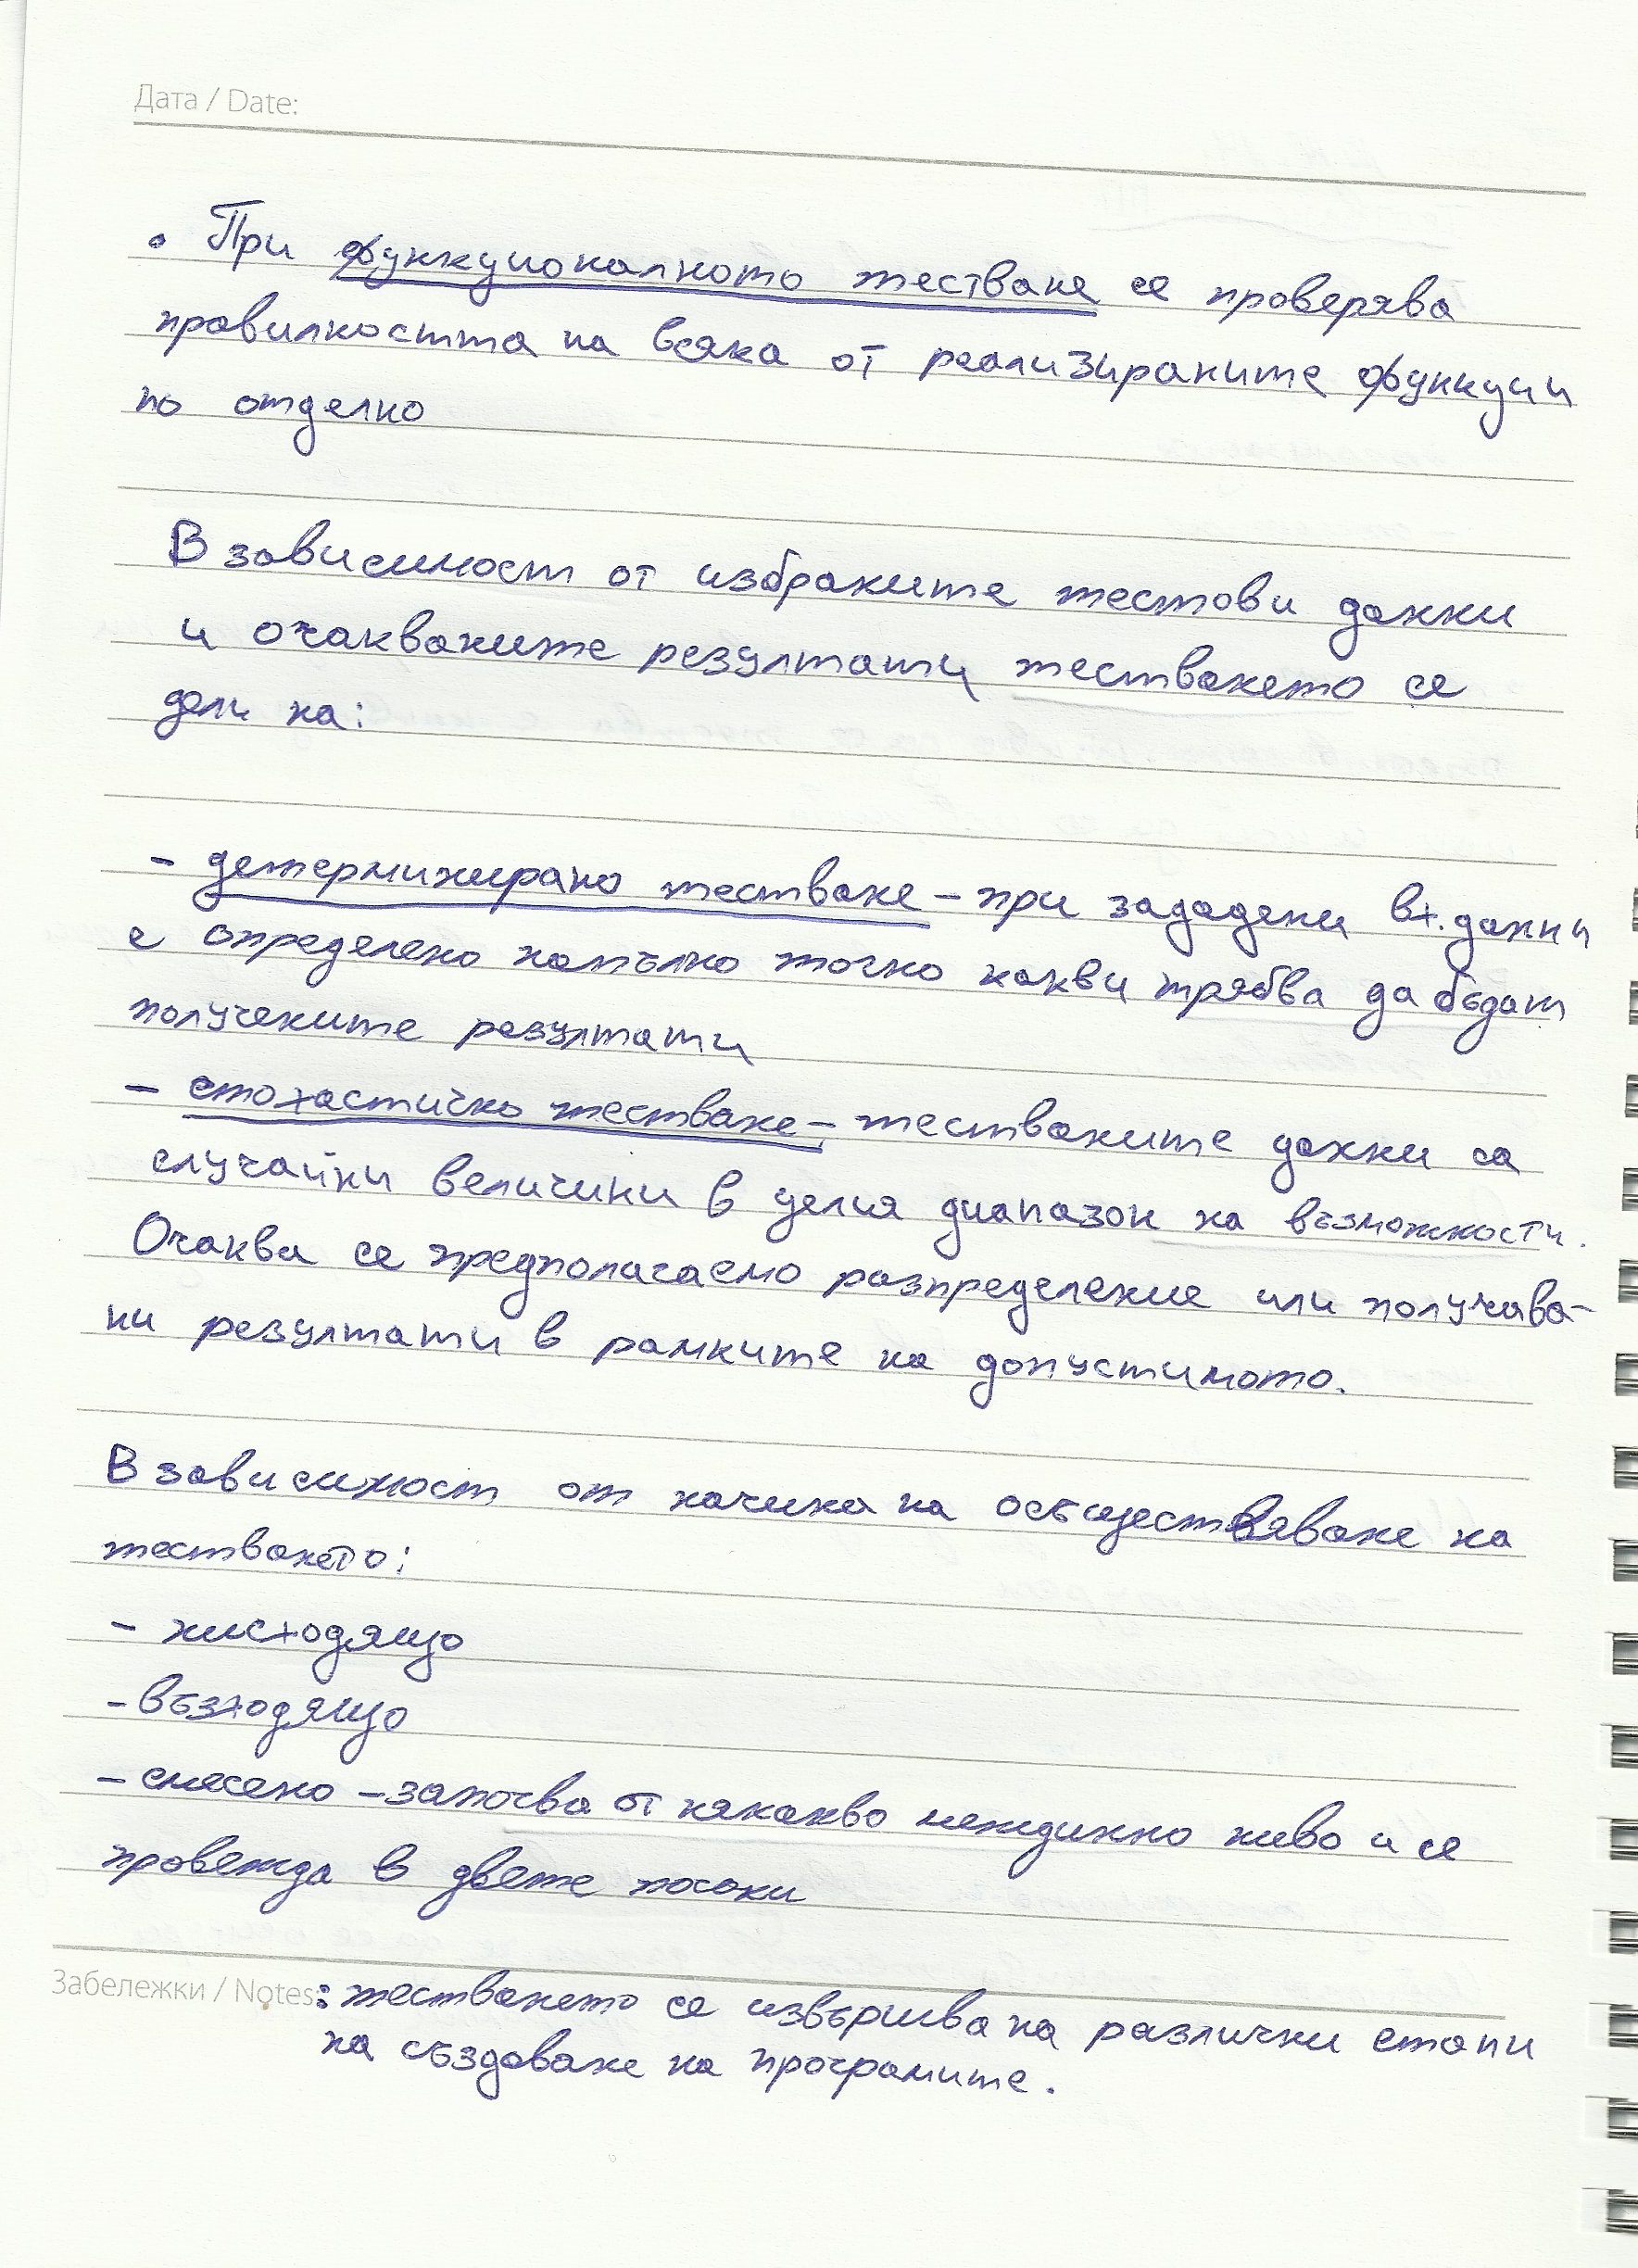 Дата / Date:
• При функционалното тестване се проверява
правилността на всяка от реализираните функции
по отделно
В зависимост от избраните тестови данни
и очакваните резултати тестването се
дели на:
- детерминирано тестване - при зададени вх. данни
е определено напълно точно какви трябва да бъдат
получените резултати
- стохастично тестване - тестваните данни са
случайни величини в целия диапазон на възможности.
Очаква се предполагаемо разпределение или получава-
ни резултати в рамките на допустимото.
В зависимост от начина на осъществяване на
тестването:
- низходящо
- възходящо
- смесено - започва от някакво междинно ниво и се
провежда в двете посоки
Забележки / Notes: тестването се извършва на различни етапи
на създаване на програмите.